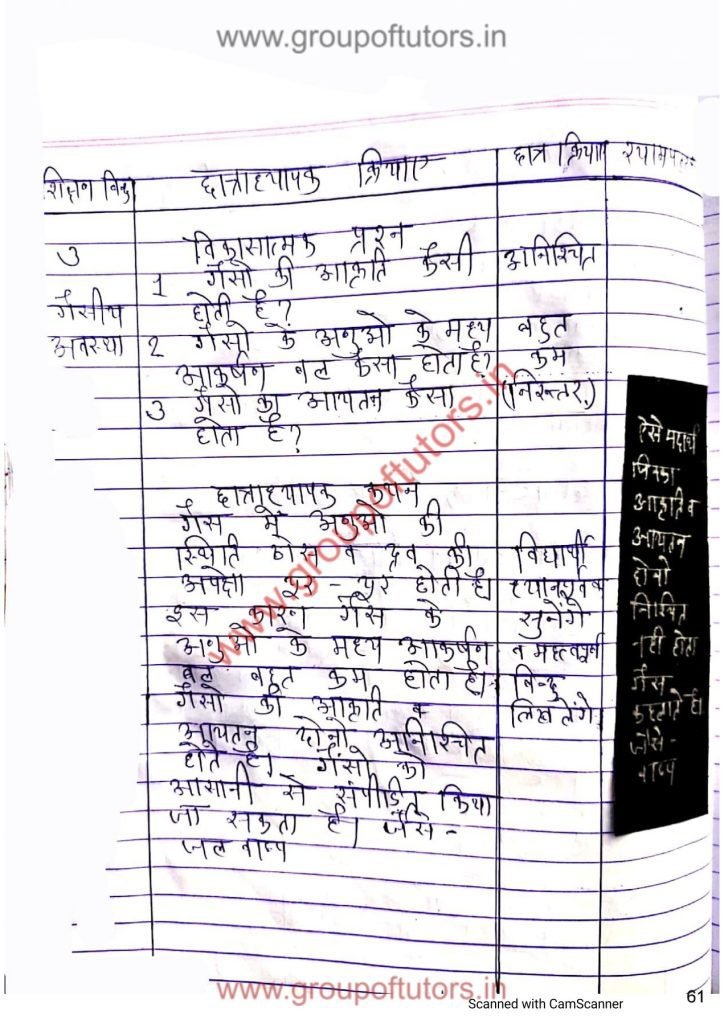 www.groupoftutors.in
शिक्षण बिन्दु छात्राध्यापक क्रियाएं छात्र क्रियाएं श्यामपट्ट
3
गैसीय
अवस्था
विकासात्मक प्रश्न
1 गैसो की आकृति कैसी
होती है?
2 गैसो के अणुओ के मध्य
आकर्षण बल कैसा होता है?
3 गैसो का आयतन कैसा
होता है?
छात्राध्यापक कथन
गैस में अणुओ की
स्थिति ठोस व द्रव की
अपेक्षा दूर - दूर होती है।
इस कारण गैस के
अणुओ के मध्य आकर्षण
बल बहुत कम होता है।
गैसो की आकृति व
आयतन दोनो अनिश्चित
होते है। गैसो को
आसानी से संपीडित किया
जा सकता है। जैसे -
जल वाष्प
अनिश्चित
बहुत
कम
(निरुत्तर)
विद्यार्थी
ध्यानपूर्वक
सुनेगे
व महत्वपूर्ण
बिन्दु
लिख लेंगे।
ऐसे पदार्थ
जिनका
आकृति व
आयतन
दोनो
निश्चित
नही होता
गैस
कहलाते है।
जैसे -
वाष्प
www.groupoftutors.in
www.groupoftutors.in
Scanned with CamScanner
61